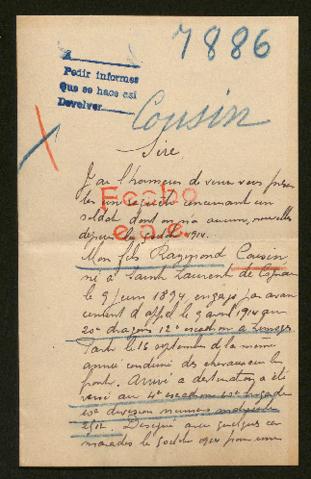 7886
A
Pedir informes
Que se hace asi
Devolver
Cousin
Sire
J'ai l'honneur de venir vous présen
ter une requête concernant un
soldat dont on n'a aucune nouvelle
depuis le 4 octobre 1914.
Fecho
Mon fils Raymond Cousin
né à Saint Laurent de Cognac
le 9 juin 1894, engagé par devan
cement d'appel le 9 avril 1914 au
20e dragons 12e escadron à Limoges
Parti le 16 septembre de la même
année conduire des chevaux sur le
front. Arrivé à destination a été
versé au 4e escadron
10e division
2512. Disparu avec quelques ca
marades le 4 octobre 1914